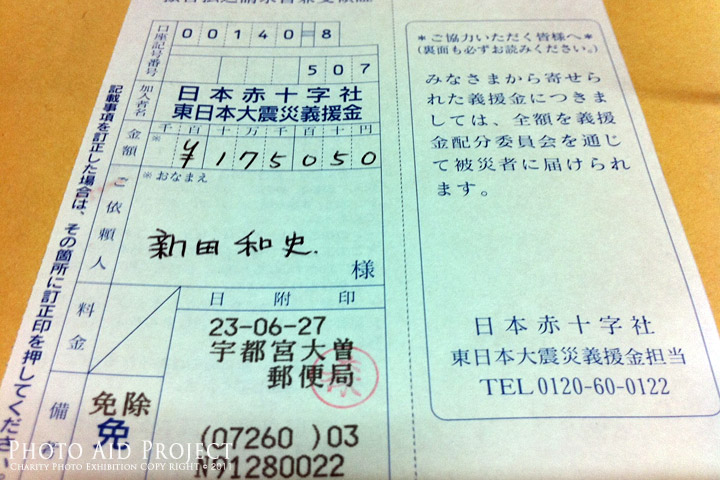 口座記号番号
00140=8
507
加入者名
日本赤十字社
東日本大震災義援金
金額
千百十万千百十円
※
¥175050
ご依頼人
※おなまえ
新田和史.
様
料金
日附印
23-06-27
宇都宮大曽
郵便局
備
免除
免
(07260 )03
N91280022
記載事項を訂正した場合は、その箇所に訂正印を押してください。
*ご協力いただく皆様へ*
(裏面も必ずお読みください。)
みなさまから寄せら
れた義援金につきま
しては、全額を義援
金配分委員会を通じ
て被災者に届けられ
ます。
日本赤十字社
東日本大震災義援金担当
TEL 0120-60-0122
PHOTO AID PROJECT
CHARITY PHOTO EXHIBITION COPY RIGHT © 2011